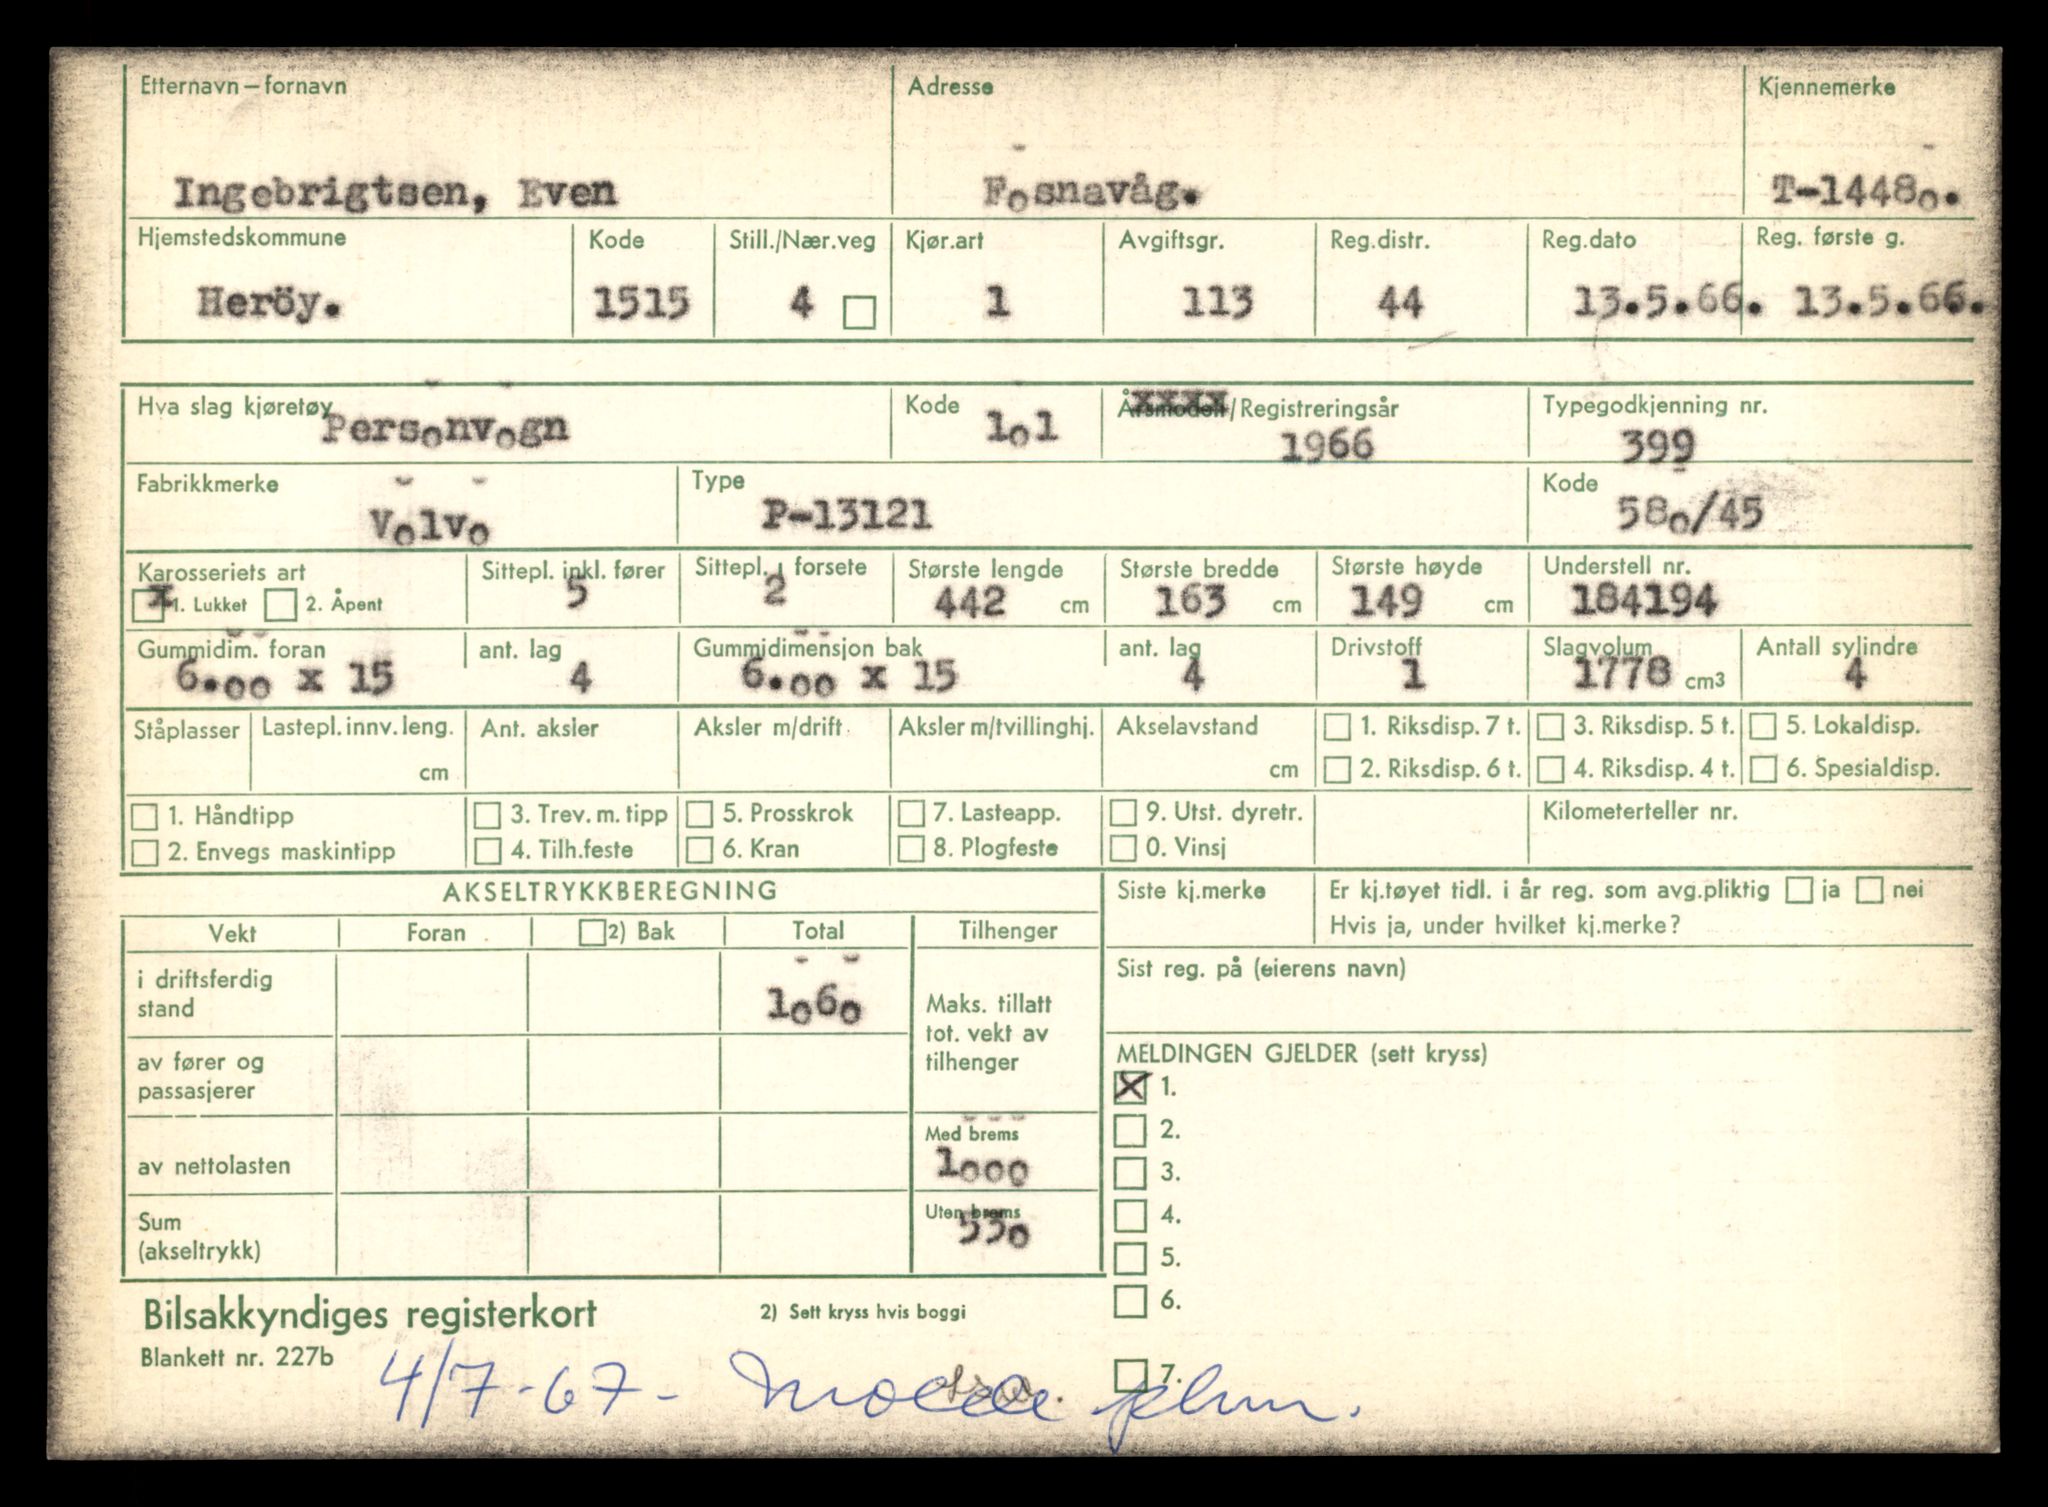 Etternavn – fornavn Adresse Kjennemerke
Ingebrigtsen, Even Fosnavåg. T-14480.
Hjemstedskommune Kode Still./Nær.veg Kjør.art Avgiftsgr. Reg.distr. Reg.dato Reg. første g.
Heröy. 1515 4 1 113 44 13.5.66. 13.5.66.
Hva slag kjøretøy Kode Årsmodell/Registreringsår Typegodkjenning nr.
Personvogn 101 xxxx 1966 399
Fabrikkmerke Type Kode
Volvo P-13121 580/45
Karosseriets art Sittepl. inkl. fører Sittepl. i forsete Største lengde Største bredde Største høyde Understell nr.
x 1. Lukket 2. Åpent 5 2 442 cm 163 cm 149 cm 184194
Gummidim. foran ant. lag Gummidimensjon bak ant. lag Drivstoff Slagvolum Antall sylindre
6.00 x 15 4 6.00 x 15 4 1 1778 cm3 4
Ståplasser Lastepl. innv. leng. Ant. aksler Aksler m/drift Aksler m/tvillinghj. Akselavstand 1. Riksdisp. 7 t. 3. Riksdisp. 5 t. 5. Lokaldisp.
cm cm 2. Riksdisp. 6 t. 4. Riksdisp. 4 t. 6. Spesialdisp.
1. Håndtipp 3. Trev. m. tipp 5. Prosskrok 7. Lasteapp. 9. Utst. dyretr. Kilometerteller nr.
2. Envegs maskintipp 4. Tilh.feste 6. Kran 8. Plogfeste 0. Vinsj
AKSELTRYKKBEREGNING Siste kj.merke Er kj.tøyet tidl. i år reg. som avg.pliktig ja nei
Hvis ja, under hvilket kj.merke?
Vekt Foran 2) Bak Total Tilhenger
Sist reg. på (eierens navn)
i driftsferdig
stand 1060
Maks. tillatt
tot. vekt av
tilhenger
av fører og
passasjerer
MELDINGEN GJELDER (sett kryss)
X 1.
2.
3.
4.
5.
6.
7.
av nettolasten
Med brems
1000
Sum
(akseltrykk)
Uten brems
550
Bilsakkyndiges registerkort 2) Sett kryss hvis boggi
Blankett nr. 227b
4/7-67- Molde